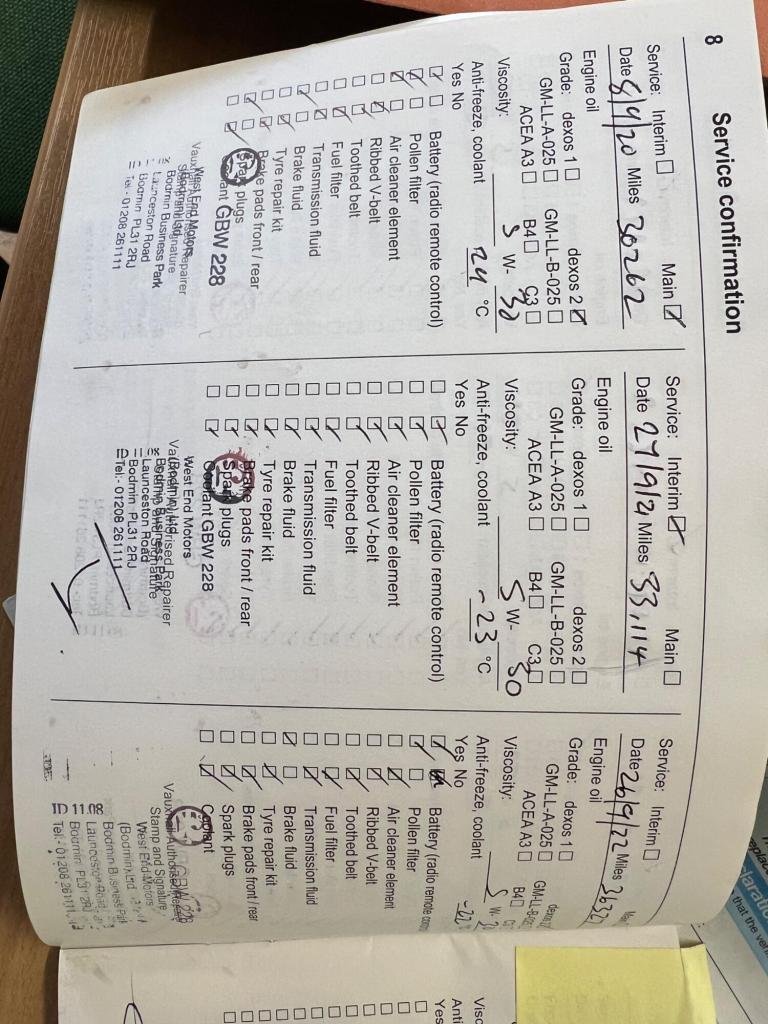 8
Service confirmation
Service: Interim ☐ Main ☑
Date 8/9/20 Miles 30262
Engine oil
Grade: dexos 1 ☐ dexos 2 ☑
GM-LL-A-025 ☐ GM-LL-B-025 ☐
ACEA A3 ☐ B4 ☐ C3 ☐
Viscosity: 5 W- 30
Anti-freeze, coolant 24 °C
Yes No
Battery (radio remote control)
Pollen filter
Air cleaner element
Ribbed V-belt
Toothed belt
Fuel filter
Transmission fluid
Brake fluid
Tyre repair kit
Brake pads front / rear
Spark plugs
GBW 228
West End Motors
(Bodmin) Ltd
Bodmin Business Park
Launceston Road
Bodmin PL31 2RJ
Tel:- 01208 261111
Service: Interim ☑ Main ☐
Date 27/9/21 Miles 33,114
Engine oil
Grade: dexos 1 ☐ dexos 2 ☐
GM-LL-A-025 ☐ GM-LL-B-025 ☐
ACEA A3 ☐ B4 ☐ C3 ☐
Viscosity: 5 W- 30
Anti-freeze, coolant -23 °C
Yes No
Battery (radio remote control)
Pollen filter
Air cleaner element
Ribbed V-belt
Toothed belt
Fuel filter
Transmission fluid
Brake fluid
Tyre repair kit
Brake pads front / rear
Spark plugs
Coolant GBW 228
West End Motors
(Bodmin) Ltd
Bodmin Business Park
Launceston Road
Bodmin PL31 2RJ
Tel:- 01208 261111
Service: Interim ☐
Date 26/9/22 Miles
Engine oil
Grade: dexos 1 ☐
GM-LL-A-025 ☐
ACEA A3 ☐ B4 ☐
Viscosity: 5 W-
Anti-freeze, coolant
Yes No
Battery (radio remote
Pollen filter
Air cleaner element
Ribbed V-belt
Toothed belt
Fuel filter
Transmission fluid
Brake fluid
Tyre repair kit
Brake pads front / rear
Spark plugs
Coolant
GBW 228
Stamp and Signature
West End Motors
(Bodmin) Ltd
Bodmin Business Park
Launceston Road
Bodmin PL31 2RJ
Tel:- 01208 261111
ID 11.08
Visc
Anti
Yes
that the